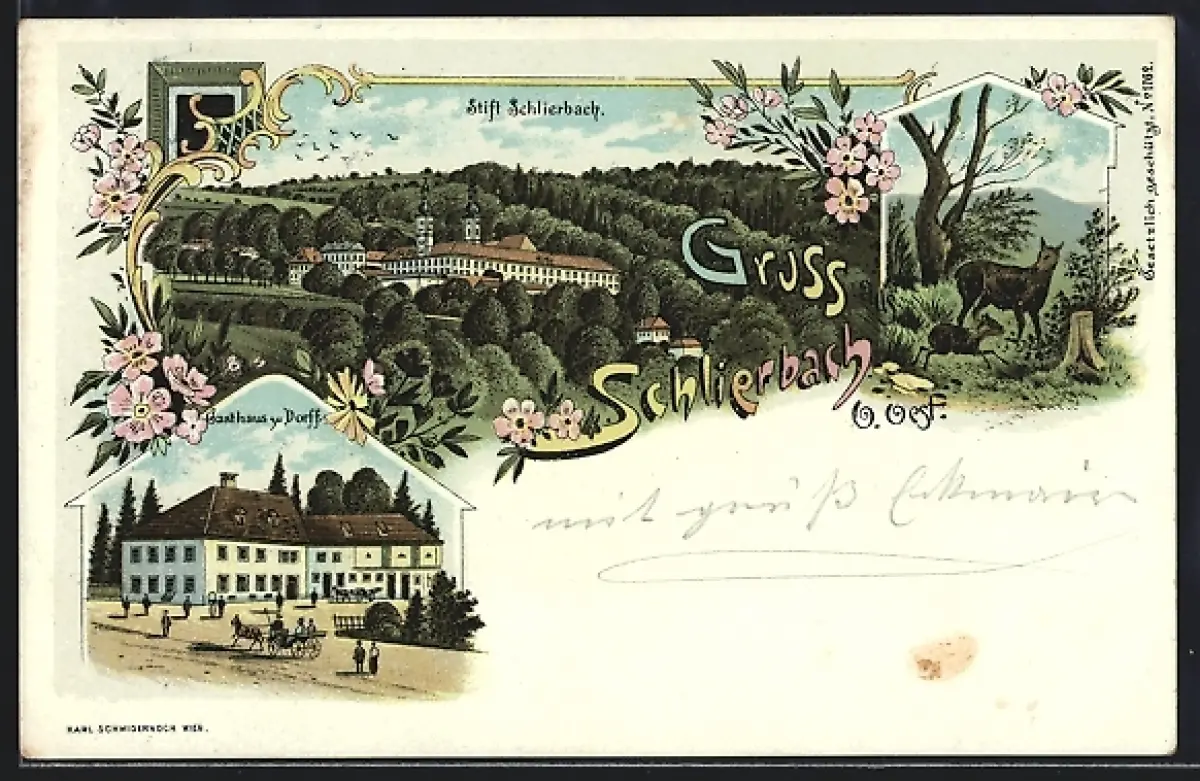 Stift Schlierbach.
Gesetzlich geschützt. No 1162.
Gruss
Schlierbach
O. Oest.
Gasthaus zu Dorff.
mit gruß
KARL SCHWIDERNOCH WIEN.